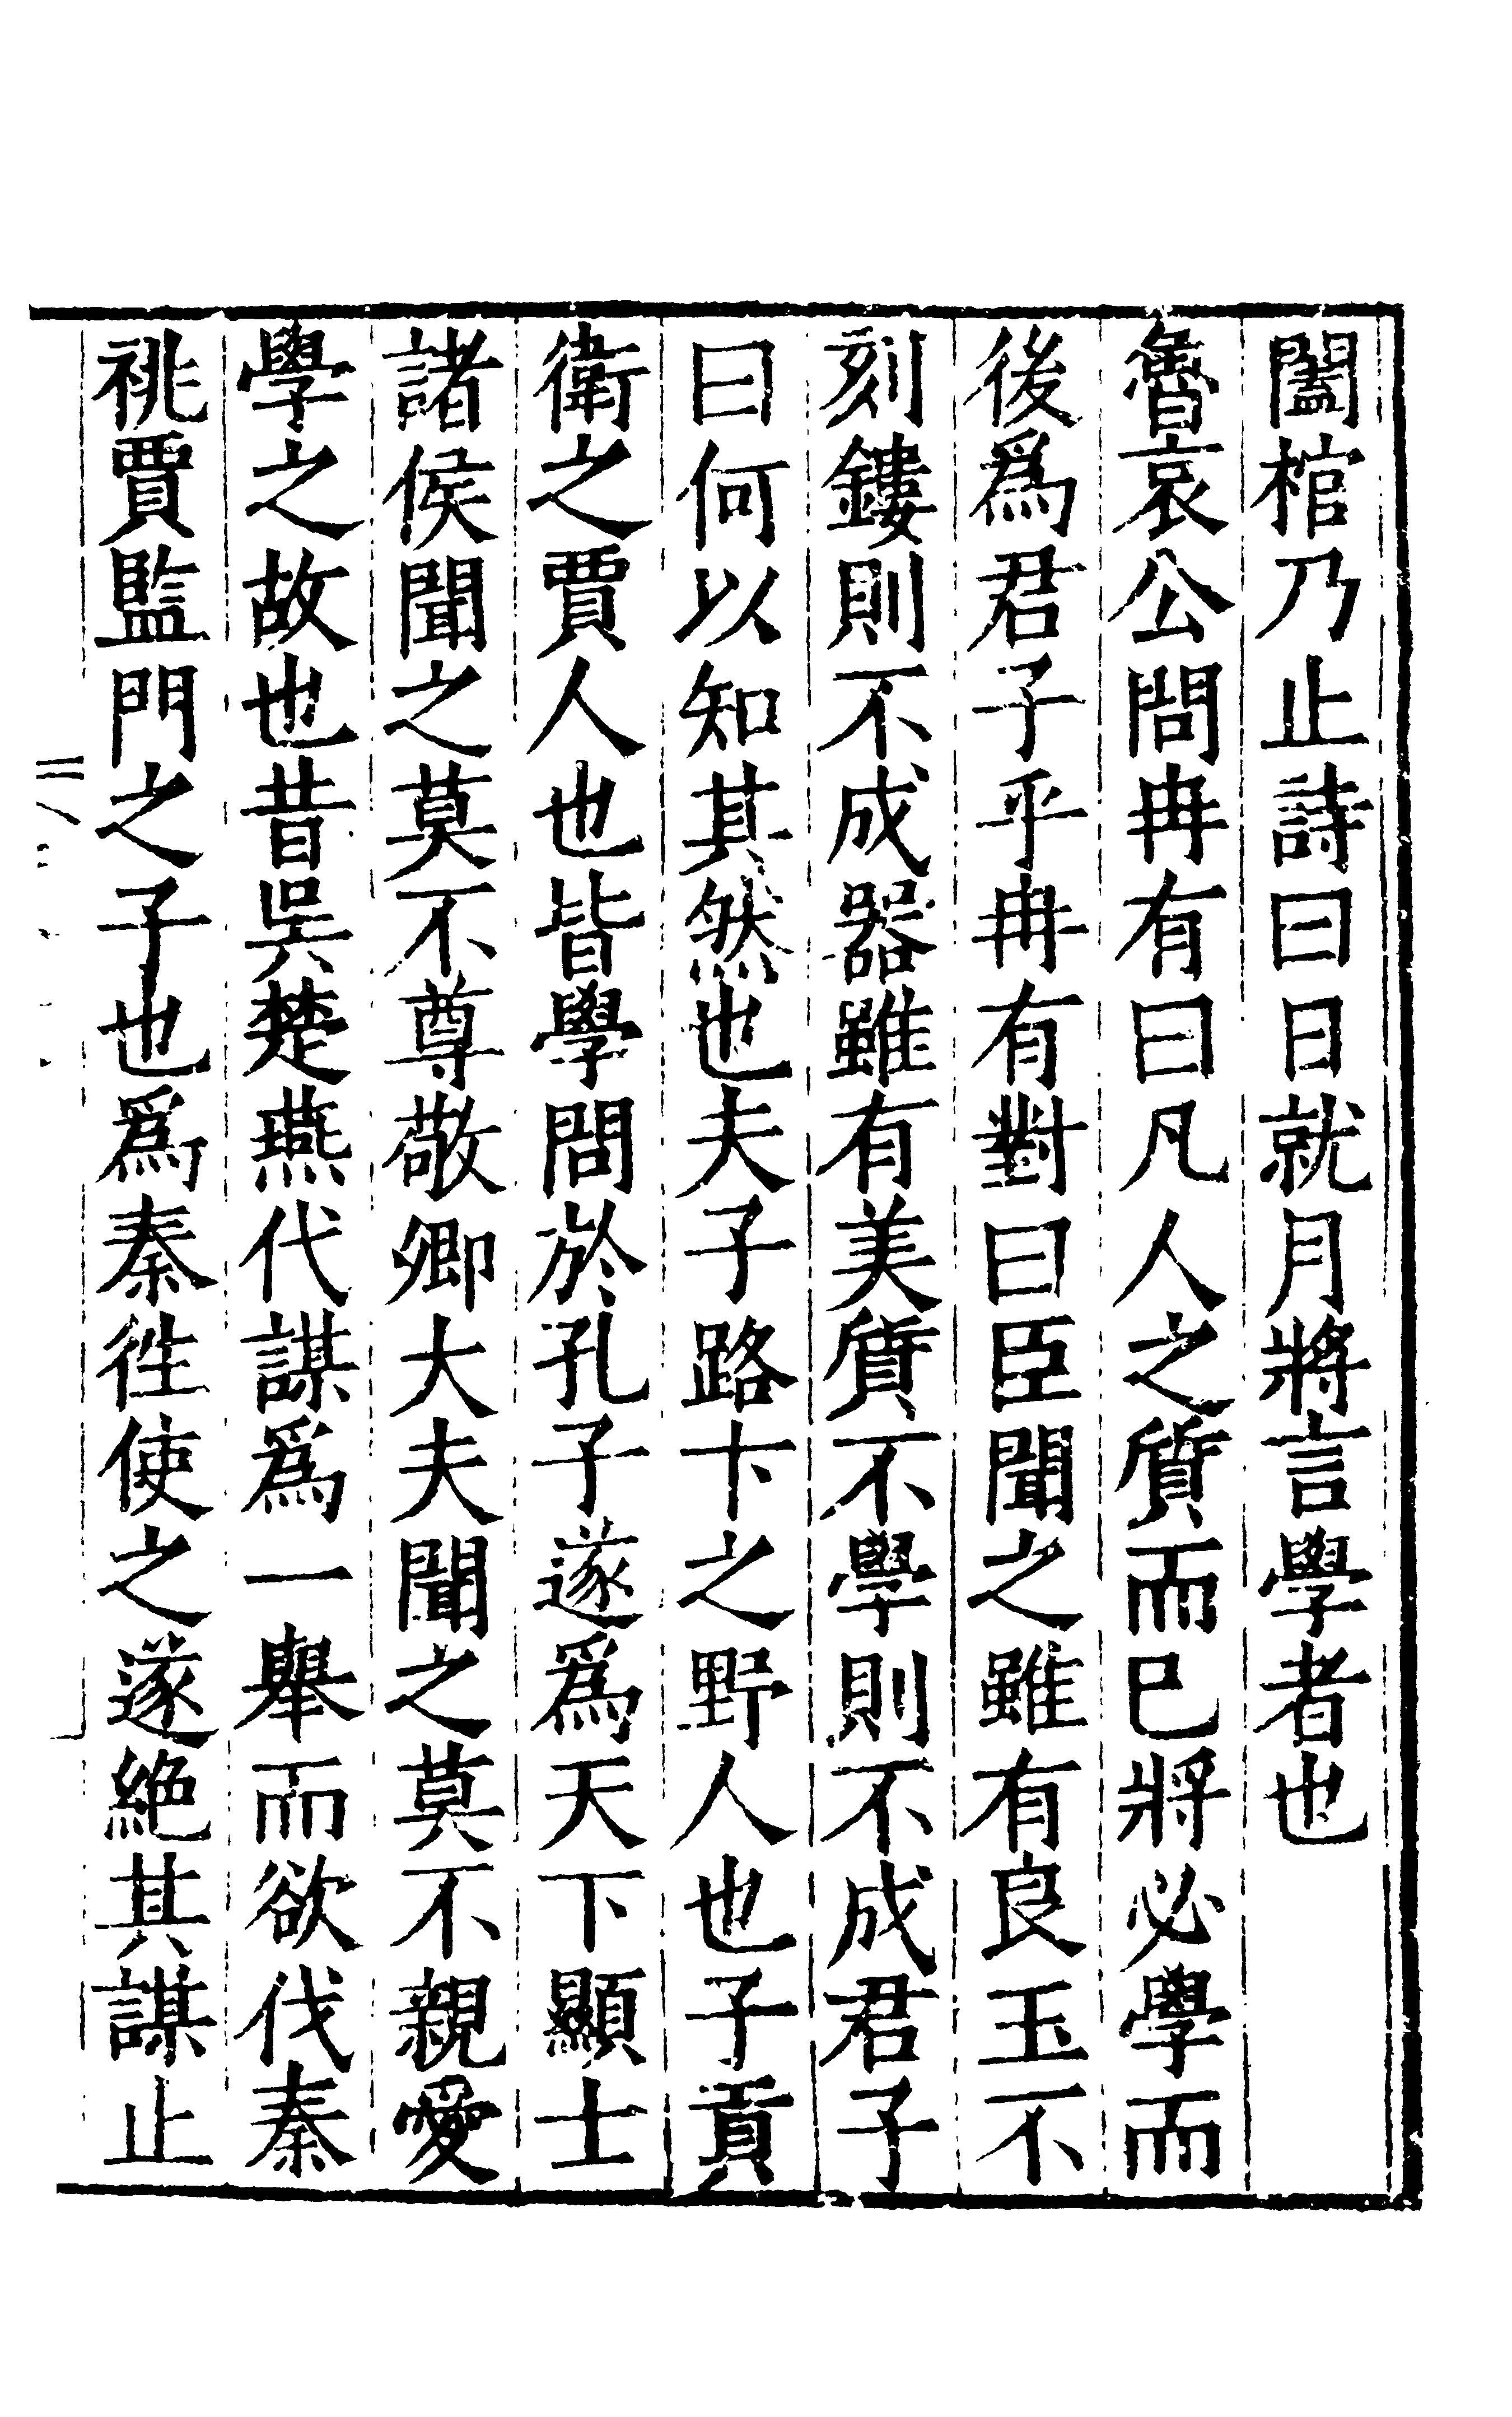 闔棺乃止詩曰日就月將言學者也
魯哀公問冉有曰凡人之質而已將必學而
後爲君子乎冉有對曰臣聞之雖有良玉不
刻鏤則不成器雖有美質不學則不成君子
曰何以知其然也夫子路卞之野人也子貢
衛之賈人也皆學問於孔子遂爲天下顯士
諸侯聞之莫不尊敬卿大夫聞之莫不親愛
學之故也昔吳楚燕代謀爲一舉而欲伐秦
祧賈監門之子也爲秦徃使之遂絶其謀止